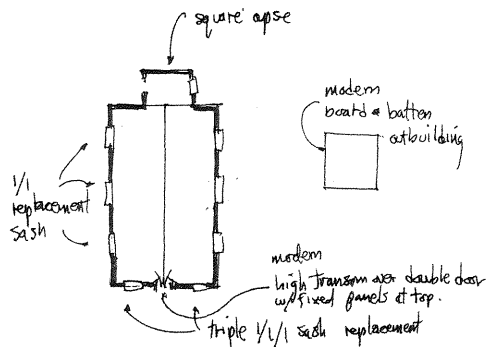 square apse
modern
board & batten
outbuilding
1/1
replacement
sash
modern
high transom over double door
w/fixed panels at top.
triple 1/1/1 sash replacement